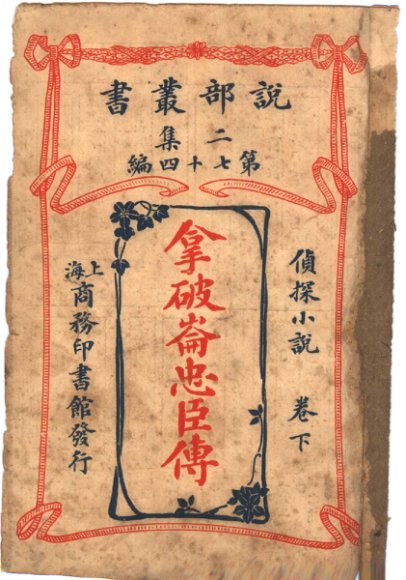 說部叢書
二集
第七十四編
偵探小說 卷下
拿破崙忠臣傳
上海商務印書館發行